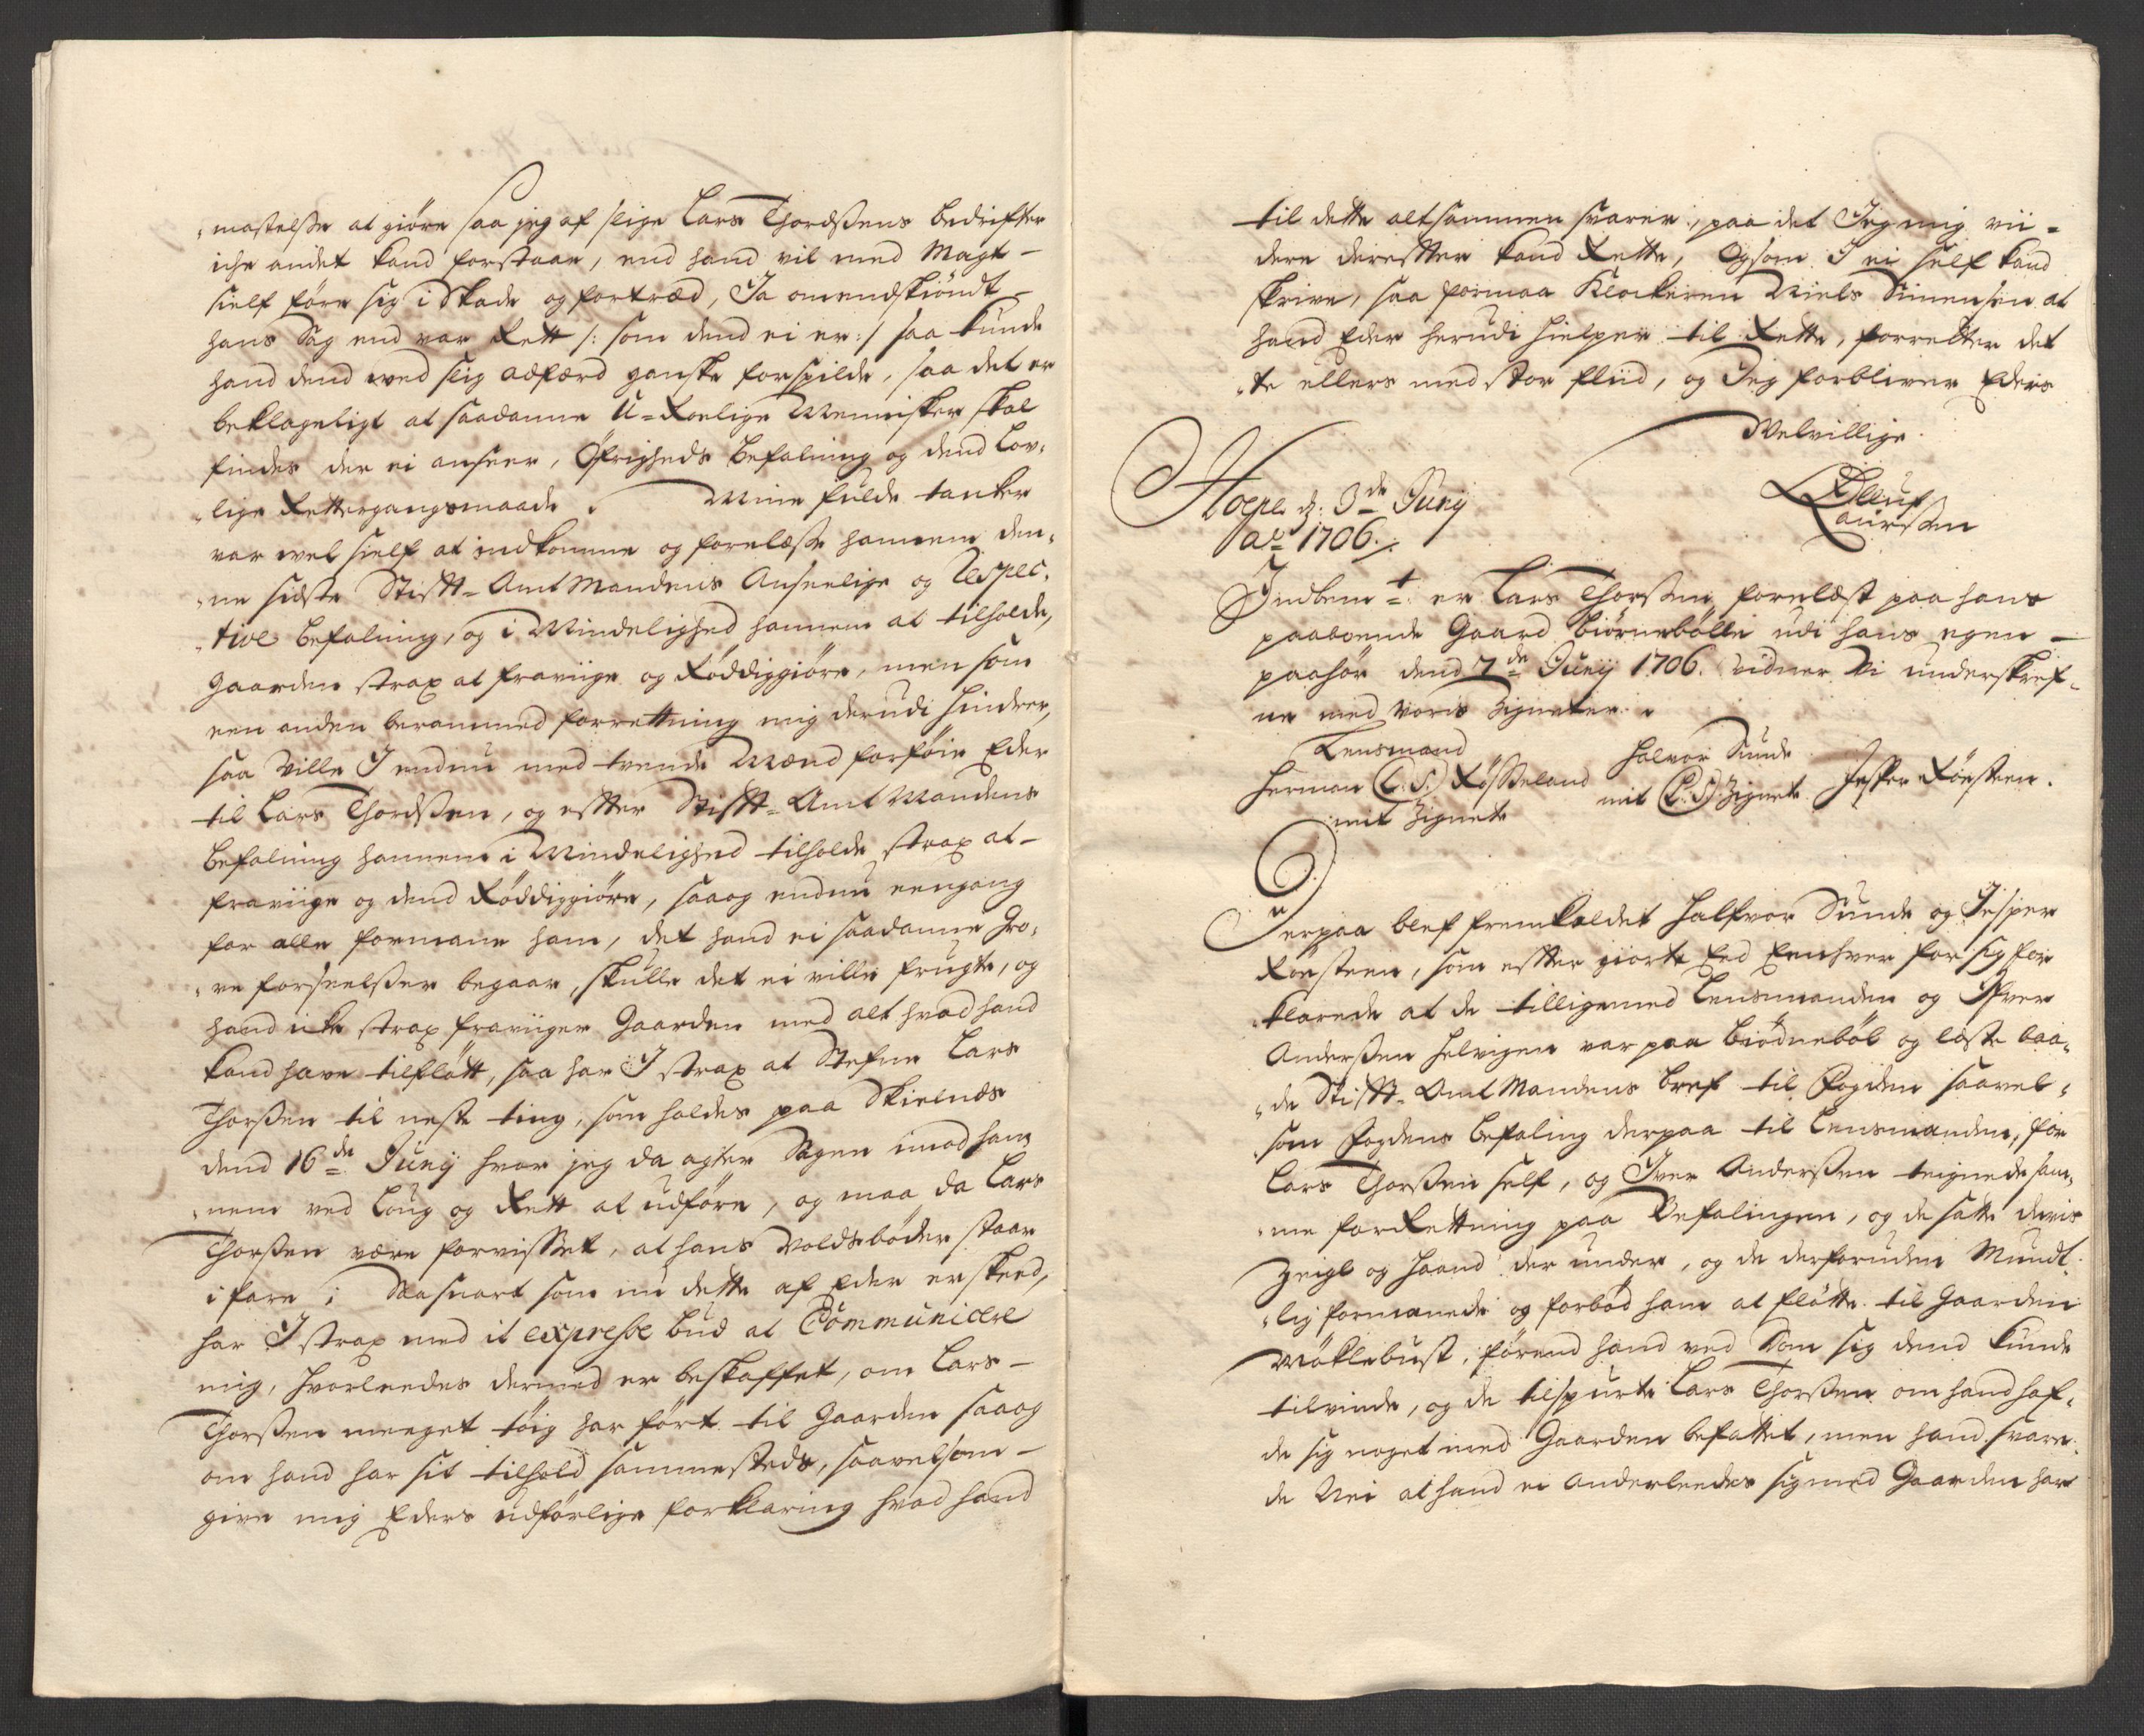 „mastelsse at giöre saa jeg af slige Lars Thordssens bedrifter
iche andet kand forstaae, end hand vil med Magt –
sielf före sig i Skade og fortræd, Ja omendskiöndt –
hans Sag end var Rett /: som dend ei er :/ saa kunde
hand dend wed slig adfærd ganske forspilde, saa det er
beklageligt at saadanne U=Roelige Mennisker skal
findes der ei anseer, Öfrigheds befalning og dend Lov„
„lige Rettergangsmaade. Mine fulde tanker
var wel sielf at indkomme og forelæsse hannem den„
„ne sidste Stifft=Amt Mandens Anseelige og Respec„
„tive befalning, og i Mindelighed hannem at tilholde,
gaarden strax at fraviige og Röddiggiöre, men som
een anden berammed forrettning mig derudi hindrer,
saa Ville I endnu med tvende Mænd forföie Eder
til Lars Thordssen, og effter Stifft=Amt Mandens
befalning hannem i Mindelighed tilholde strax at –
fraviige og dend Röddiggiöre, saaog endnu eengang
for alle formane ham, det hand ei saadanne Gro„
„ve forseelsser begaar, skulle det ei ville frugte, og
hand icke strax fraviiger Gaarden med alt hvad hand
kand have tilflött, saa har I strax at Stefne Lars
Thorssen til neste ting, som holdes paa Skielnæs
dend 16de Junij hvor jeg da agter Sagen imod han„
„nem ved Loug og Rett at udföre, og maa da Lars
Thorssen være forvisset, at hans Voldsböder staar
i fare; Saasnart som nu dette af Eder er skeed,
har I strax med it expresse bud at Communicere
mig, hvorleedes dermed er beskaffet, om Lars –
Thorssen meeget töig har fört til Gaarden saaog
om hand har sit tilhold sammesteds, saavelsom –
give mig Eders udförlige forklaring hvad hand
til dette altsammen svarer, paa det Jeg mig vii=
dere dereffter kand Rette, Ogsom I ei self kand
skrive, saa formaa Klockeren Niels Simensen at
hand Eder herudi hielper til Rette, forretter det
„te ellers med stor fliid, og Jeg forbliver Eders
Welvillige
Hopl. d: 3de Junij
ao 1706.
Olluf
Laurssen
Indbemt er Lars Thorssen forelæst paa hans
paaboende Gaard biörnebölle udi hans egen –
paahör dend 7de Junij 1706. vidner Vi underskref„
ne med voris Zigneter.
Lensmand
Herman (L.S.) Rösseland
mit Zignete
Halvor Sunde
mit (L.S.) Zignete
Jesper Röesteen.
Derpaa blef fremkaldet Halfvor Sunde og Jesper
Röesteen, som effter giorte Eed Eenhver for sig for
„klarede at de tilligemed Lensmanden og Ifver
Anderssen Helvigen var paa biödneböl og læste baa„
„de Stifft=Amt Mandens bref til Fogden saavel„
som Fogdens befaling derpaa til Lensmanden, for
Lars Thorssen self, og Iver Anderssen teignede sam„
„me forRettning paa Befalingen, og de satte deris
Zeigl og haand der under, og de derforuden Mundt„
„lig formanede og forböd ham at flötte til Gaarden
Möklebust, förend hand ved Dom sig dend kunde
tilvinde, og de tilspurte Lars Thorssen om hand haf„
de sig noget med Gaarden befattet, men hand svare„
de Nei at hand ei anderleedes sig med Gaarden har